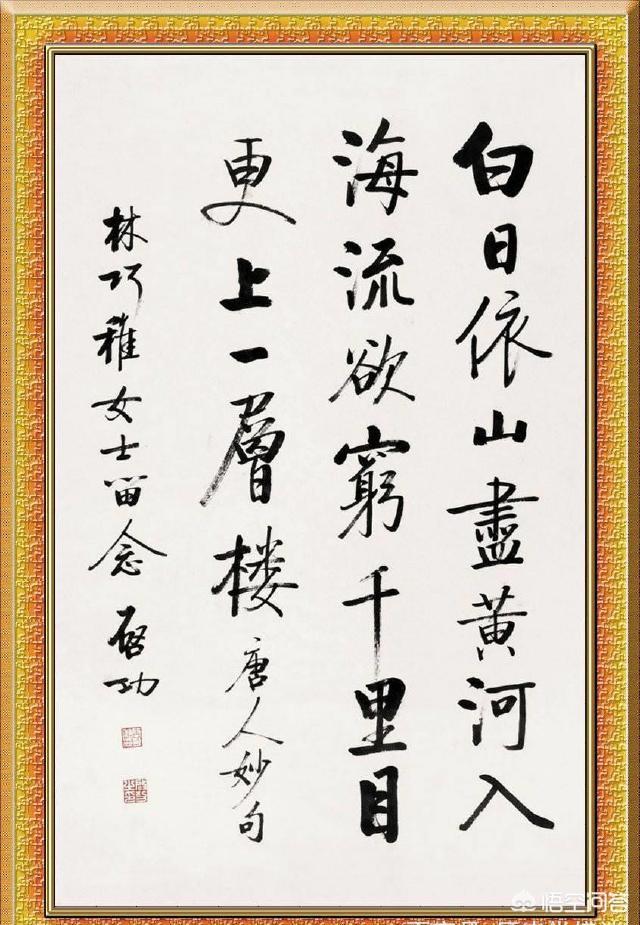 白日依山盡黄河入
海流欲窮千里目
更上一層楼唐人妙句
林巧稚女士留念 啓功
悟空问答